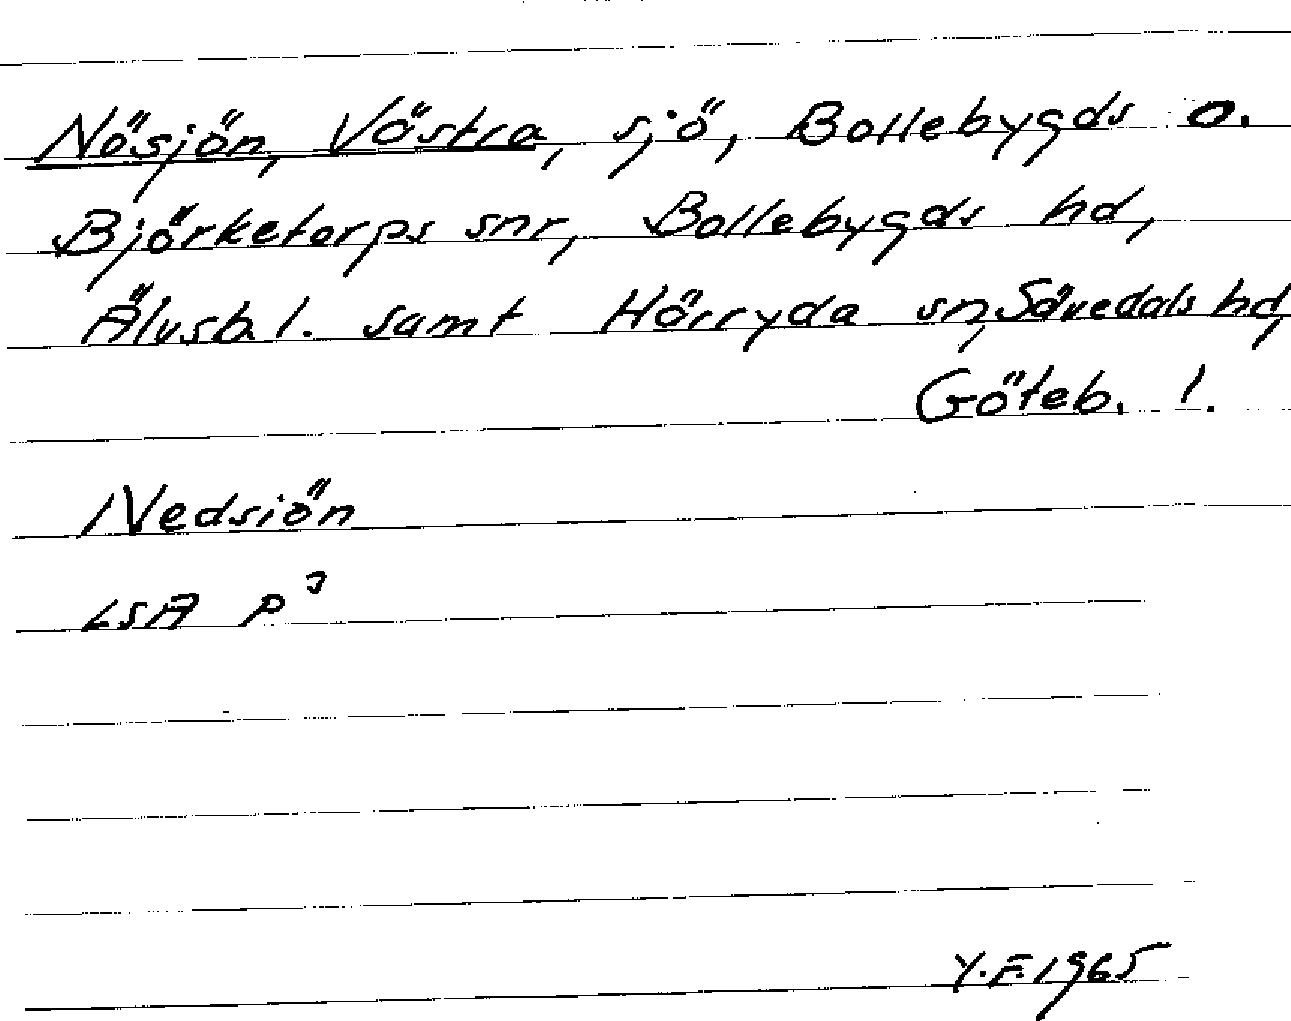 Näsjön, Västra, sjö, Bollebygds o.
Björketorps snr, Bollebygds hd,
Älvsb. l. samt Härryda sn, Sävedals hd,
Göteb. l.
Nedsiön
LSA P 3
Y.F. 1965